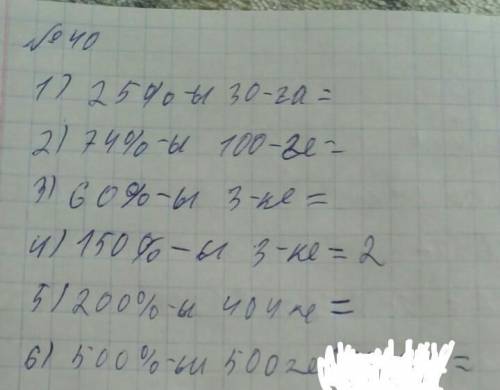 №40
1) 25%-ы 30-га=
2) 74%-ы 100-ге=
3) 60%-ы 3-ке=
4) 150%-ы 3-ке=2
5) 200%-ы 404ке=
6) 500%-ы 500ге =